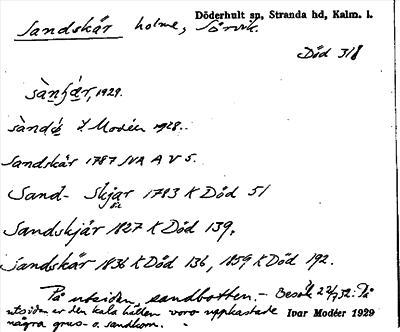 Döderhult sn, Stranda hd, Kalm. l.
Sandskär holme, Sörvik.
Död 318
sàndé I. Modéer 1928.
Sandskär 1787 JVA A V 5.
Sand- Skjär 1783 K Död 51
Sandskjär 1827 K Död 139.
Sandskär 1836 K Död 136, 1859 K Död 192.
På utsidan, sandbotten. – Besök 22/7 32: På
utsidan er den kala hällen voro uppkastade
några grus- o. sandkorn.
Ivar Modéer 1929